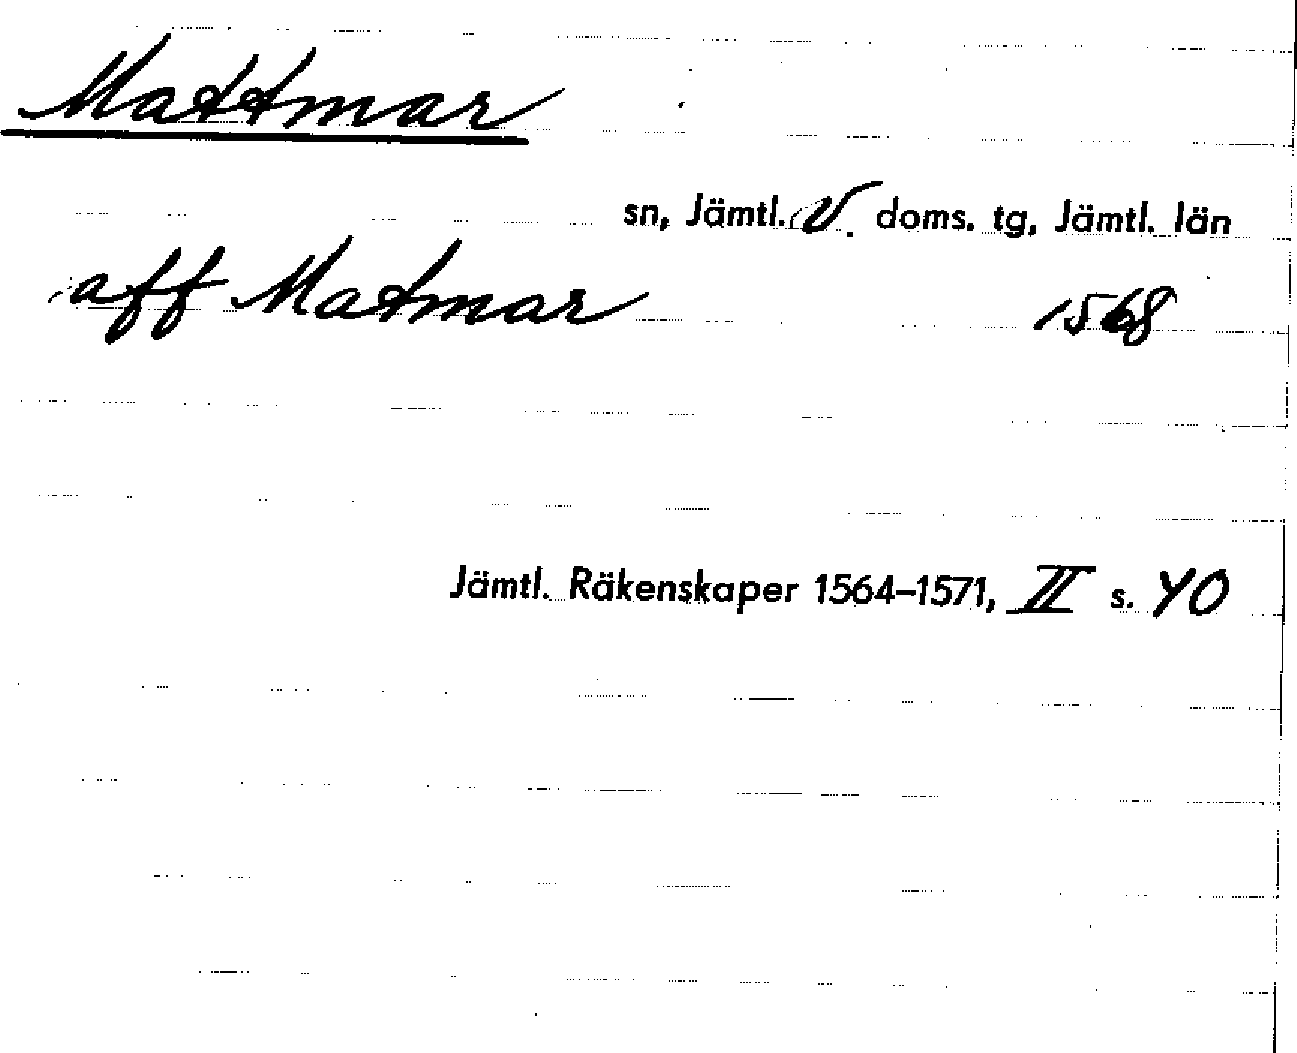 Mattmar
sn, Jämtl. V. doms. tg, Jämtl. län
aff Matmar 1568
Jämtl. Räkenskaper 1564–1571, II s. 40